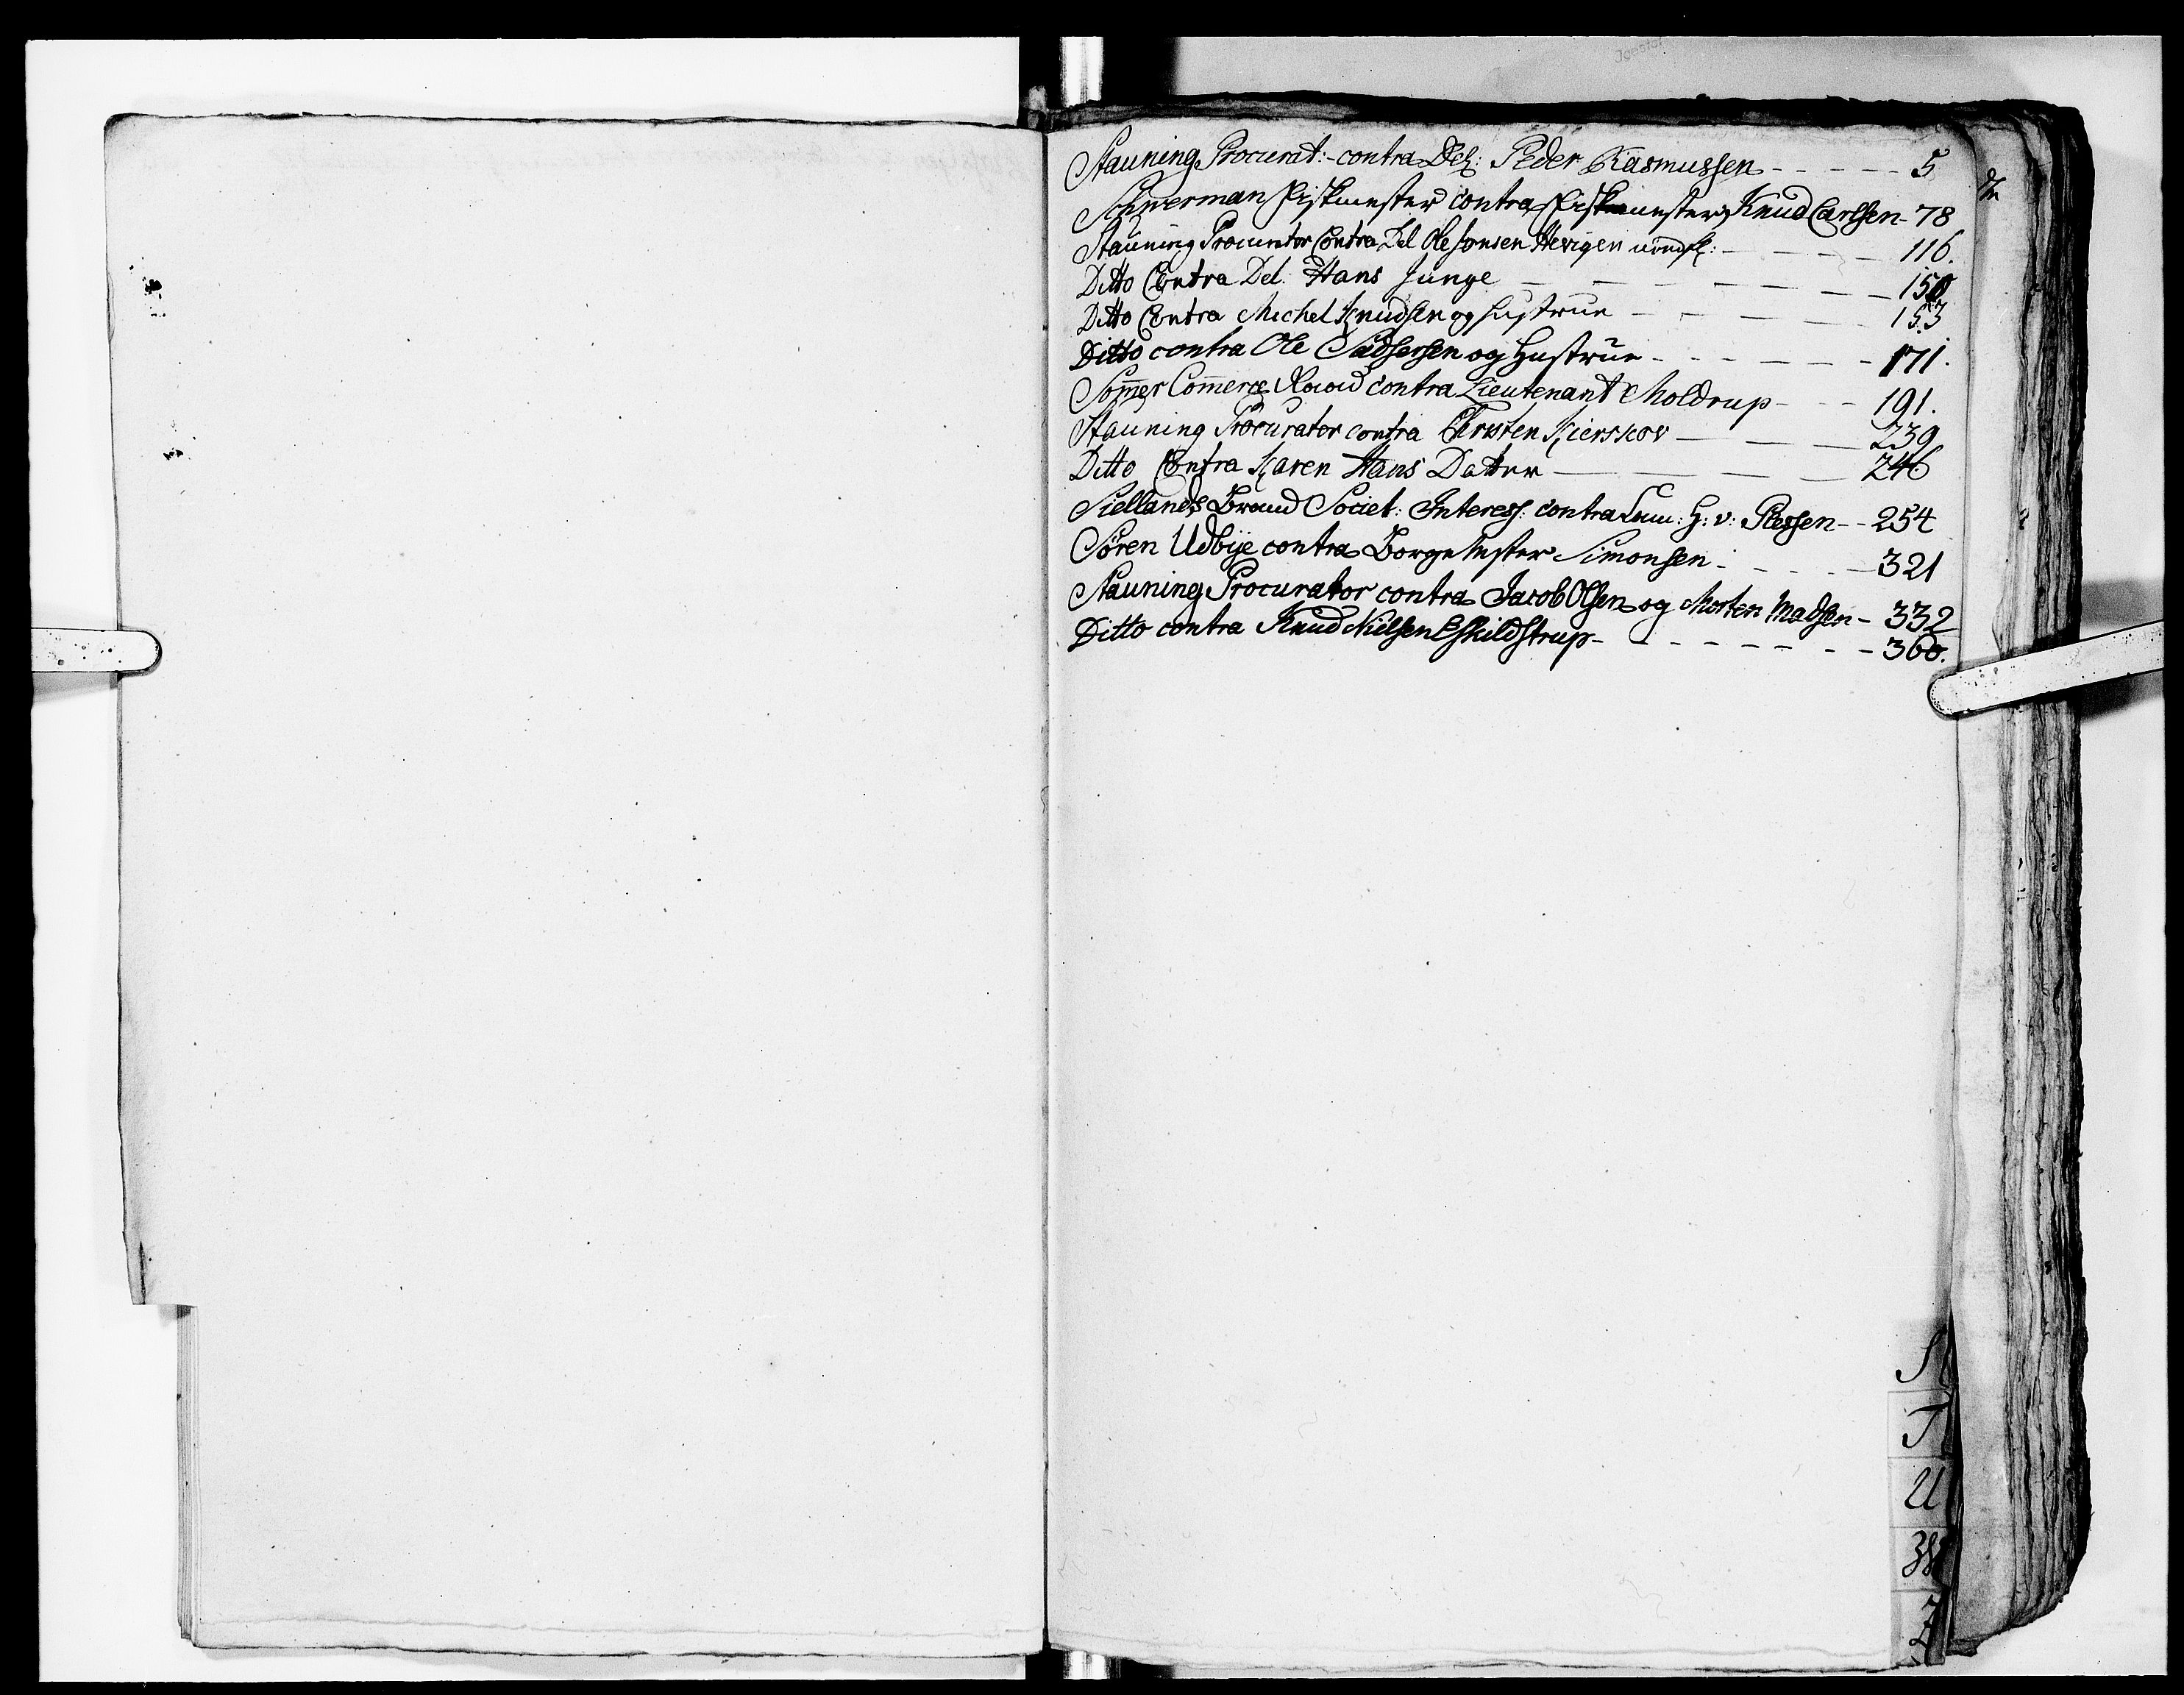 Stauning Procurat: contra Del: Peder Rasmussen - - - - - 5
Schverman Fiskmester contra Fiskmester Knud Carlsen - 78
Stauning Procurator Contra Del Ole Jonsen - - - - 116.
Ditto Contra Del. Hans Junge - - - - - - 150
Ditto Contra Michel Knudsen og Hustrue - - - - 153
Ditto contra Ole Sadsersen og Hustrue - - - - - 171.
Som̄er Com̄erce Raad contra Lieutenant Moldrup - - - 191.
Stauning Procurator contra Christen Kierskov - - - 239
Ditto Contra Karen Hans Datter - - - - 246
Siellands Brand Societ: Interess: contra Cam: H: v: Plessen - - 254
Sören Udbÿe contra Borgemester Simonsen - - - - - 321
Stauning Procurator contra Jacob Olsen og Morten Madsen - 332
Ditto contra Knud Nielsen Eskildstrup - - - - - - - - 360.
S
T
U